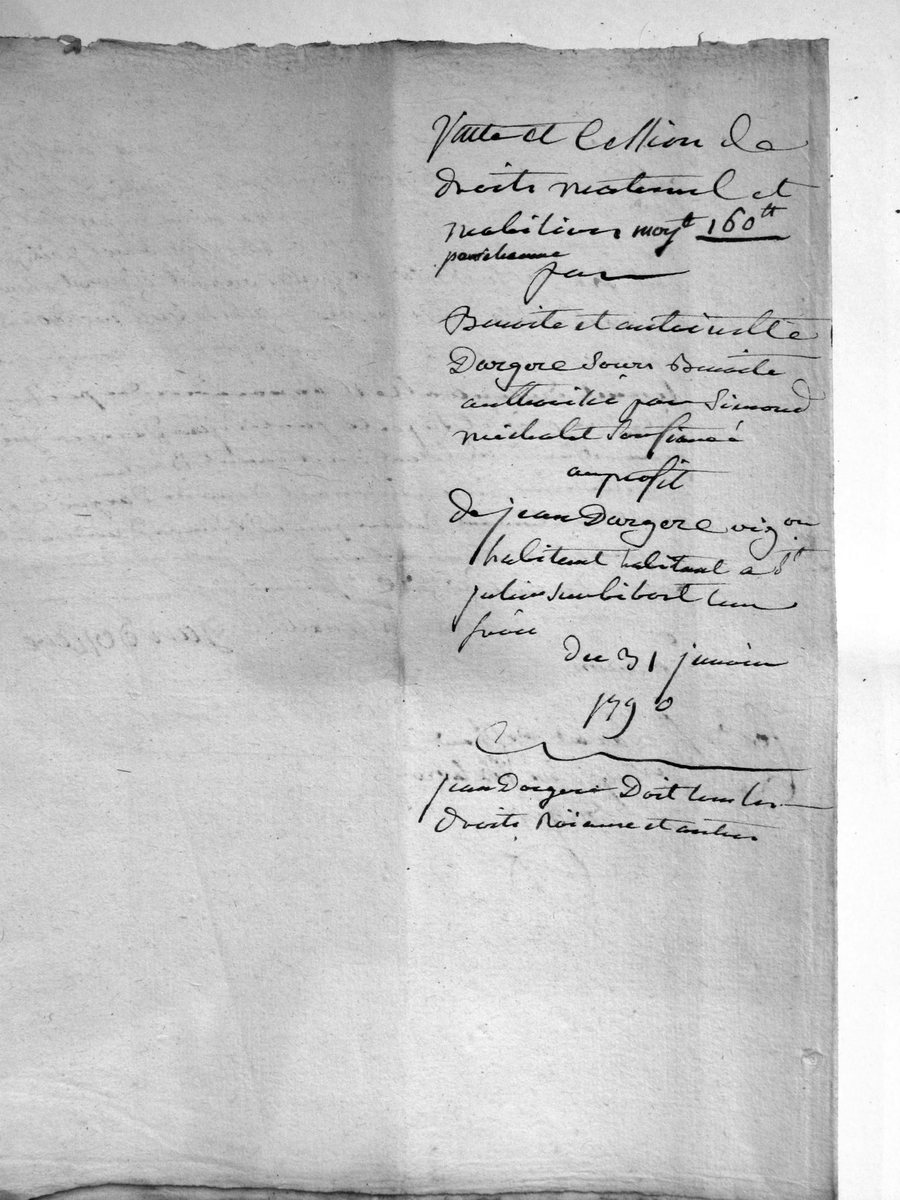 Vente et Cession de
droits maternel et
mobiliers moyt 160tt
pour chacune
par
Benoite et antoinette
Dargere Sœurs Benoite
authorisé par Simond
michalet Son fiancé
au profit
de jean Dargere vigon
habitant habitant a St
julien Sur bibost leur
frère
du 31 janvier
1790
jean Dargere Doit tous les
droits Roiaux et autres